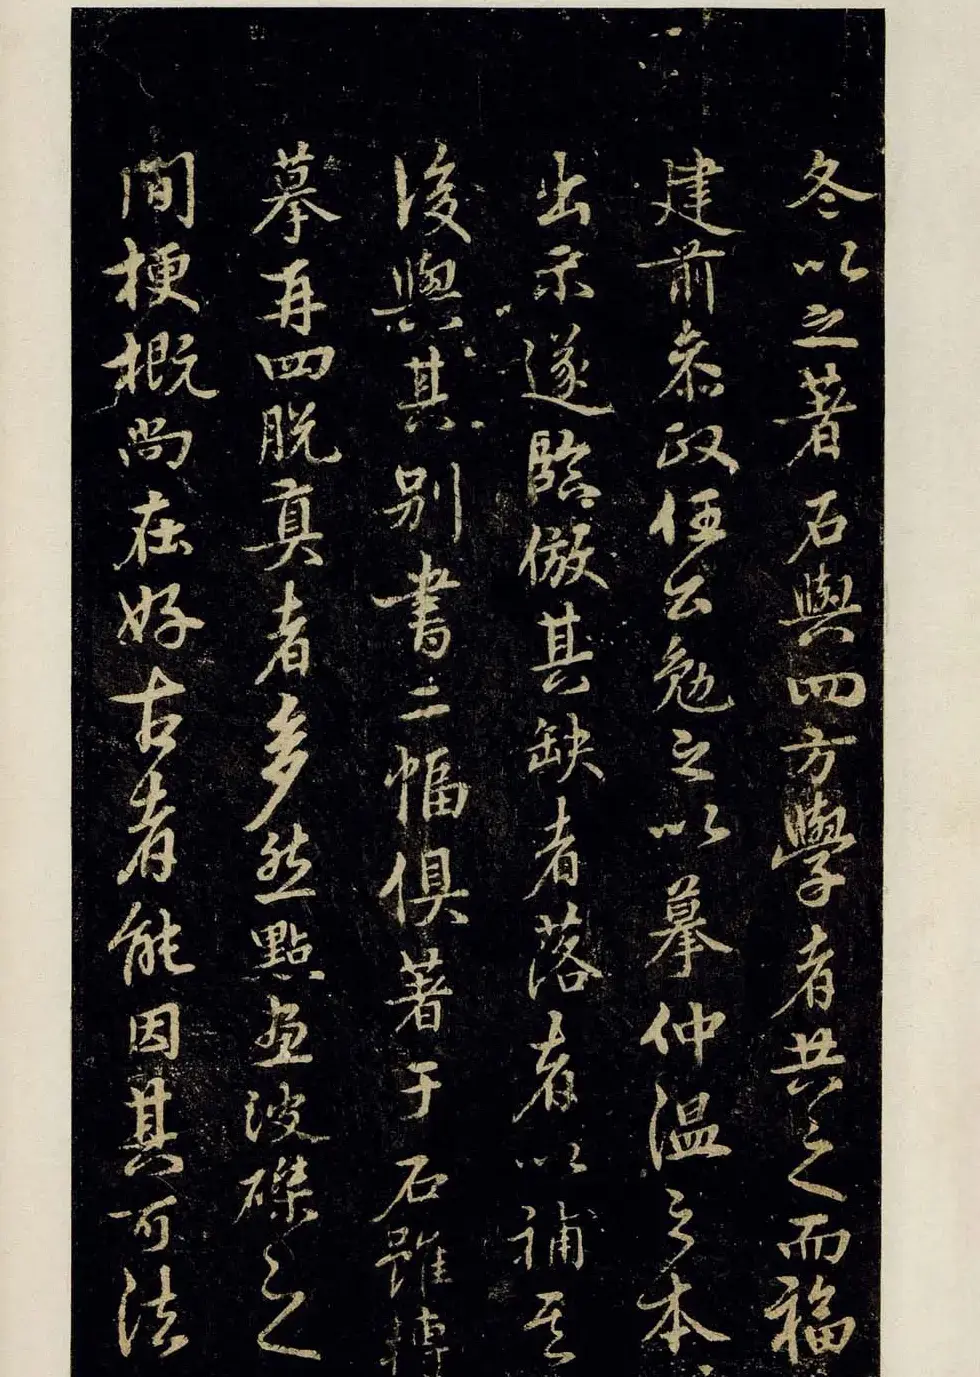 冬以之著石與四方學者共之而福
建前叅政任公勉之以摹仲温之本
出示遂臨倣其缺者落者以補其
後與其别書二幅俱著于石雖轉
摹再四脱真者多然點畫波磔之
間梗概尚在好古者能因其可法